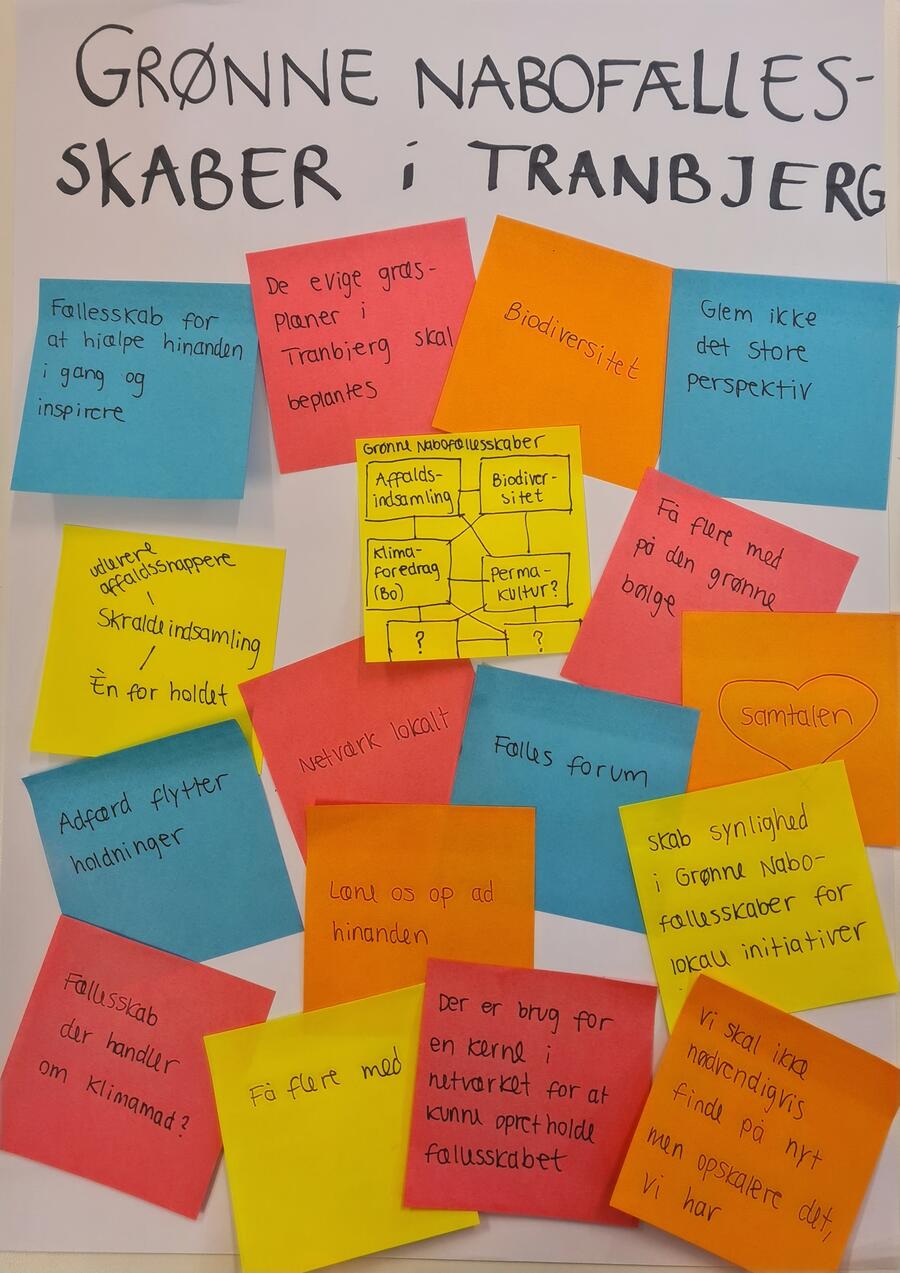 GRØNNE NABOFÆLLES-
SKABER i TRANBJERG
Fællesskab for
at hjælpe hinanden
i gang og
inspirere
De evige græs-
planer i
Tranbjerg skal
beplantes
Biodiversitet
Glem ikke
det store
perspektiv
Grønne Nabofællesskaber
Affalds-
indsamling
Biodiver-
sitet
Klima-
foredrag
(Bo)
Perma-
kultur?
?
?
Få flere med
på den grønne
bølge
udlevere
affaldssnappere
Skraldeindsamling
Èn for holdet
Netværk lokalt
Fælles forum
samtalen
Adfærd flytter
holdninger
Læne os op ad
hinanden
skab synlighed
i Grønne Nabo-
fællesskaber for
lokale initiativer
Fællesskab
der handler
om klimamad?
Få flere med
Der er brug for
en kerne i
netværket for at
kunne opretholde
fællesskabet
Vi skal ikke
nødvendigvis
finde på nyt
men opskalere det,
vi har